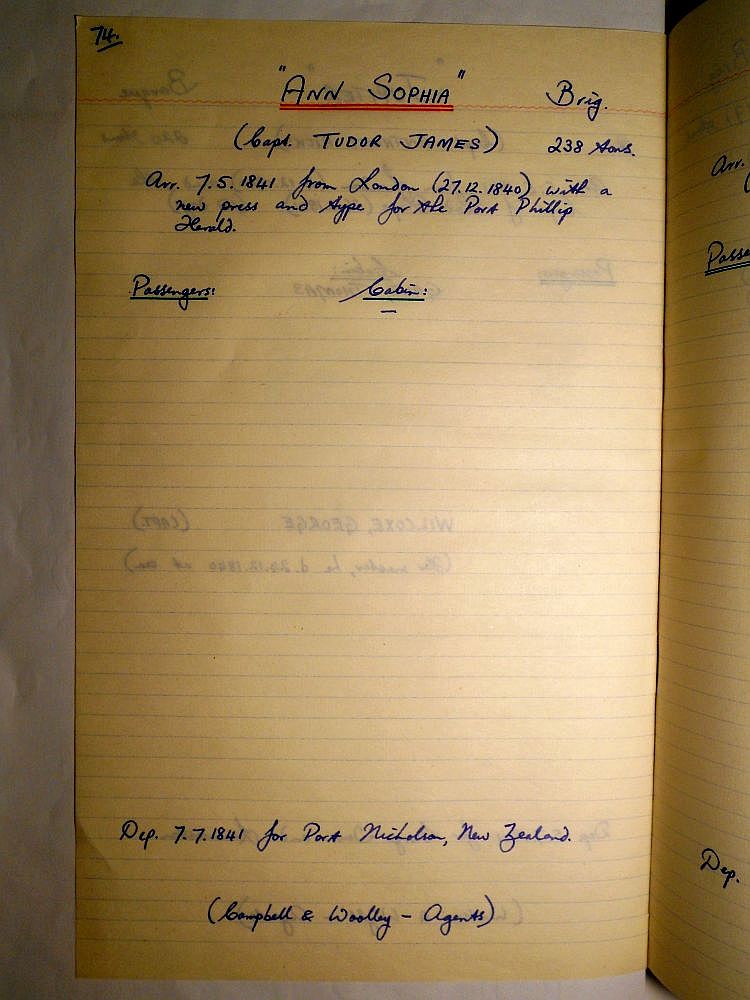 74.
"ANN SOPHIA" Brig.
(Capt. TUDOR JAMES) 238 tons.
Arr. 7.5.1841 from London (27.12.1840) with a
new press and type for the Port Phillip
Herald.
Passengers: Cabin:
—
Dep. 7.7.1841 for Port Nicholson, New Zealand.
(Campbell & Woolley - Agents)
Arr.
(
Passe
Dep.